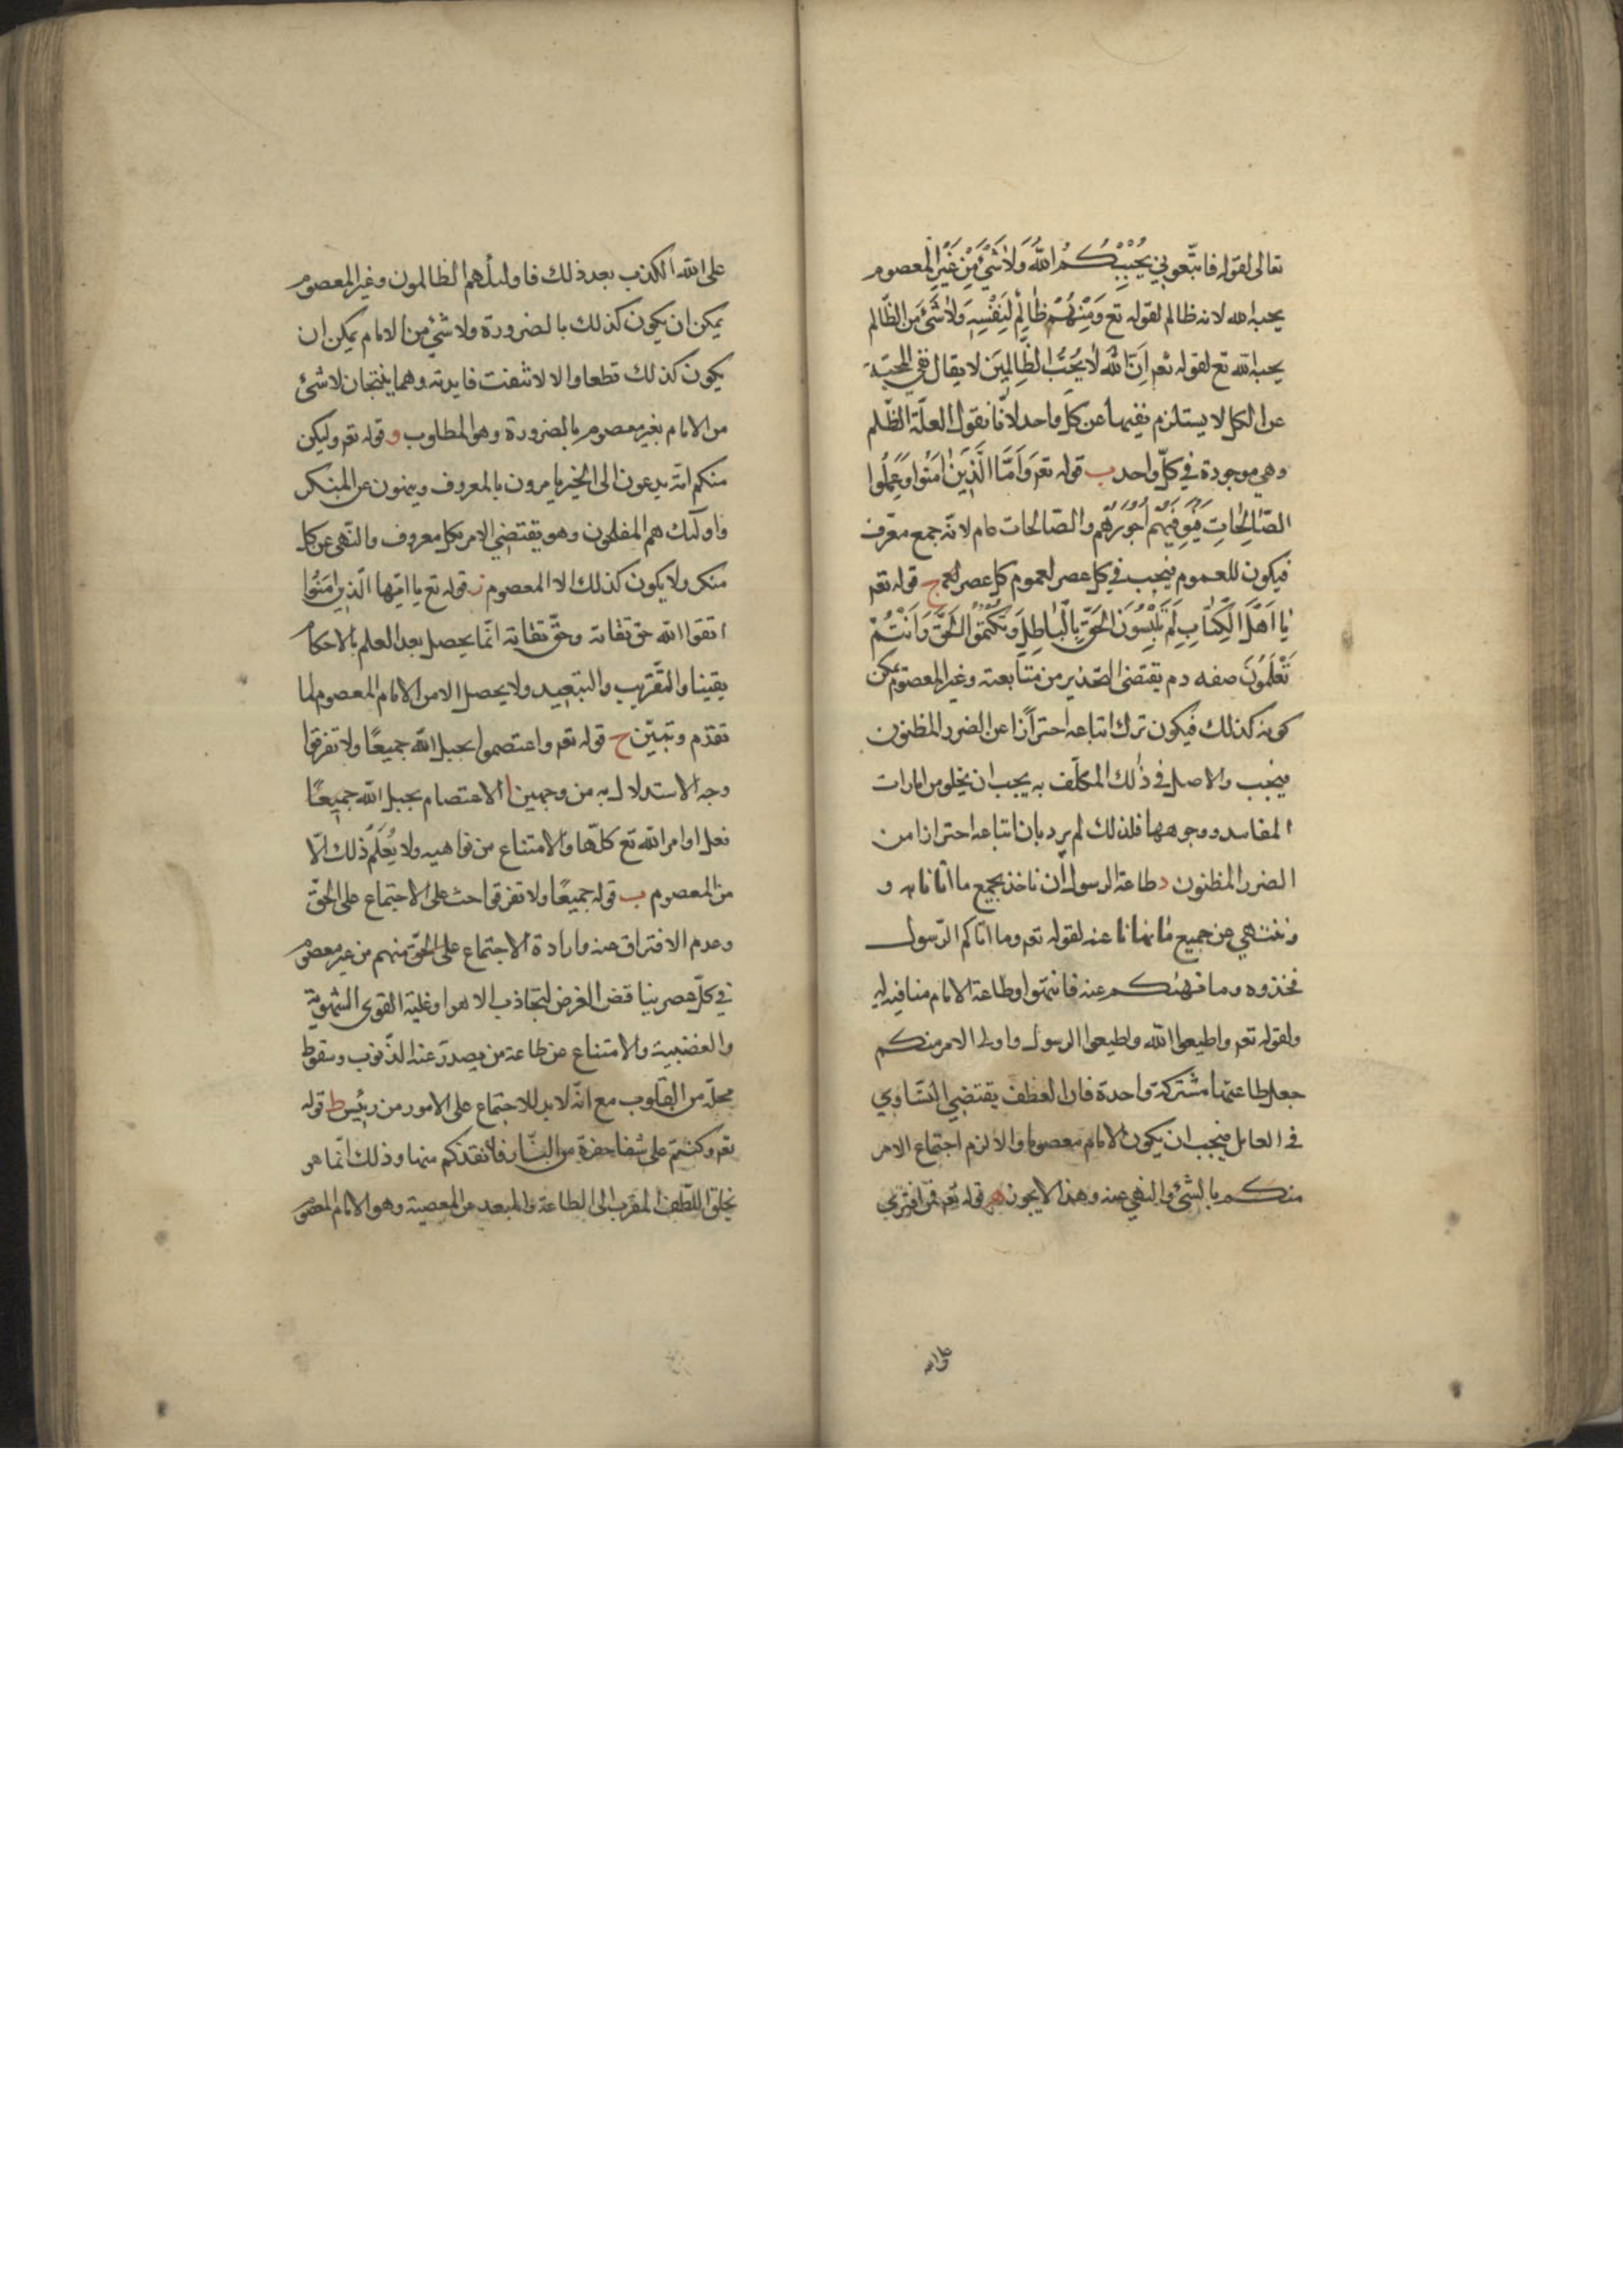 تعالى لقوله فاتبعوني يُحْبِبْكُمُ اللهُ وَلَا شَيْءَ مِنْ غَيْرِ المعصوم
يحبه الله لانه ظالم لقوله تع وَمِنْهُمْ ظَالِمٌ لِنَفْسِهِ وَلَا شَيْءَ مِنَ الظّالم
يحبه الله تع لقوله تعم اِنَّ اللهَ لَا يُحِبُّ الظَّالِمِينَ لا يقال نفي المحبّة
عن الكل لا يستلزم نفيها عن كلّ واحد لانّا نقول العلّة الظّلم
وهي موجودة في كلّ واحد ب قوله تعم وَاَمَّا الَّذِينَ اٰمَنُوا وَعَمِلُوا
الصَّالِحَاتِ فَيُوَفِّيهِمْ اُجُورَهُمْ والصّالحات عام لانّه جمع معرّف
فيكون للعموم فيجب في كل عصر لعموم كل عصر لعم ج قوله تعم
يَا اَهْلَ الْكِتَابِ لِمَ تَلْبِسُونَ الْحَقَّ بِالْبَاطِلِ وَتَكْتُمُونَ الْحَقَّ وَاَنْتُمْ
تَعْلَمُونَ صفه دم يقتضى التحذير من متابعته وغير المعصوم يمكن
كونه كذلك فيكون ترك اتباعه احترازا عن الضرر المظنون
فيجب والاصل في ذلك المكلّف به يجب ان يخلو من امارات
المفاسد ووجوهها فلذلك لم يرد بان اتباعه احترازا من
الضرر المظنون د طاعة الرسول ان ناخذ بجميع ما اتانا به و
وننتهي عن جميع ما نهانا عنه لقوله تعم وما اتاكم الرّسول
فخذوه وما نهيكم عنه فانتهوا وطاعة الامام منافيه له
ولقوله تعم واطيعوا الله واطيعوا الرسول واولى الامر منكم
جعل طاعتهما مشتركة واحدة فان العطف يقتضي التساوي
في العامل فيجب ان يكون الامام معصوما والا لزم اجتماع الامر
منكم بالشئ والنهي عنه وهذا لا يجوز ه قوله تعم فمن افترى
على الله
على الله الكذب بعد ذلك فاولئك هم الظالمون وغير المعصوم
يمكن ان يكون كذلك بالضرورة ولا شئ من الامام يمكن ان
يكون كذلك قطعا والا لانتفت فايدته وهما ينتجان لا شئ
من الامام بغير معصوم بالضرورة وهو المطلوب و قوله تعم وليكن
منكم امّة يدعون الى الخير يامرون بالمعروف وينهون عن المنكر
واولئك هم المفلحون وهو يقتضي الامر بكل معروف والنهي عن كل
منكر ولا يكون كذلك الا المعصوم ز قوله تع يا ايّها الّذين اٰمَنُوا
اتقوا الله حق تقاته وحقّ تقاته انّما يحصل بعد العلم بالاحكام
يقينا والتقريب والتبعيد ولا يحصل الا من الامام المعصوم لما
تقدّم وتبيّن ح قوله تعم واعتصموا بحبل الله جميعًا ولا تفرقوا
وجه الاستدلال به من وجهين ا الاعتصام بحبل الله جميعًا
فعل اوامر الله تع كلّها والامتناع من نواهيه ولا يُعلَم ذلك الّا
من المعصوم ب قوله جميعًا ولا تفرقوا حث على الاجتماع على الحقّ
وعدم الافتراق عنه وارادة الاجتماع على الحقّ منهم من غير معصوم
في كلّ عصر يناقض الغرض لتجاذب الاهوا وغلبة القوى الشهوية
والغضبية والامتناع عن طاعة من يصدر عنه الذّنوب وسقوط
محلّه من القلوب مع انّه لا بد للاجتماع على الامور من رئيس ط قوله
تعم وكنتم على شفا حفرة من النّار فانقذكم منها وذلك انّما هو
بخلق اللّطف المقرب الى الطاعة والمبعد عن المعصية وهو الامام المعصوم